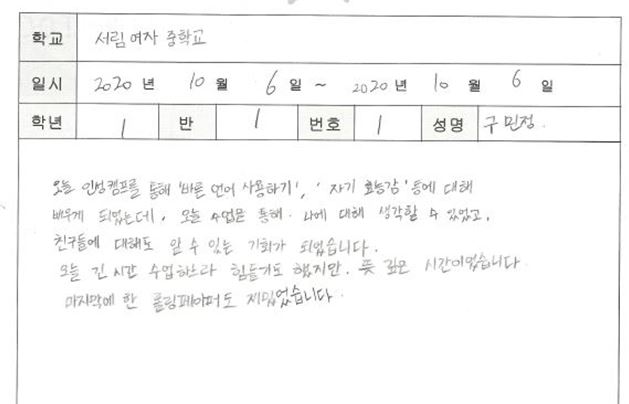 학교 서림여자 중학교
일시 2020 년 10 월 6 일 ~ 2020 년 10 월 6 일
학년 1 반 1 번호 1 성명 구민정.
오늘 인성캠프를 통해 '바른 언어 사용하기', '자기 효능감' 등에 대해
배우게 되었는데, 오늘 수업을 통해. 나에 대해 생각할 수 있었고,
친구들에 대해도 알 수 있는 기회가 되었습니다.
오늘 긴 시간 수업하느라 힘들기도 했지만. 뜻 깊은 시간이었습니다.
마지막에 한 롤링페이퍼도 재밌었습니다.